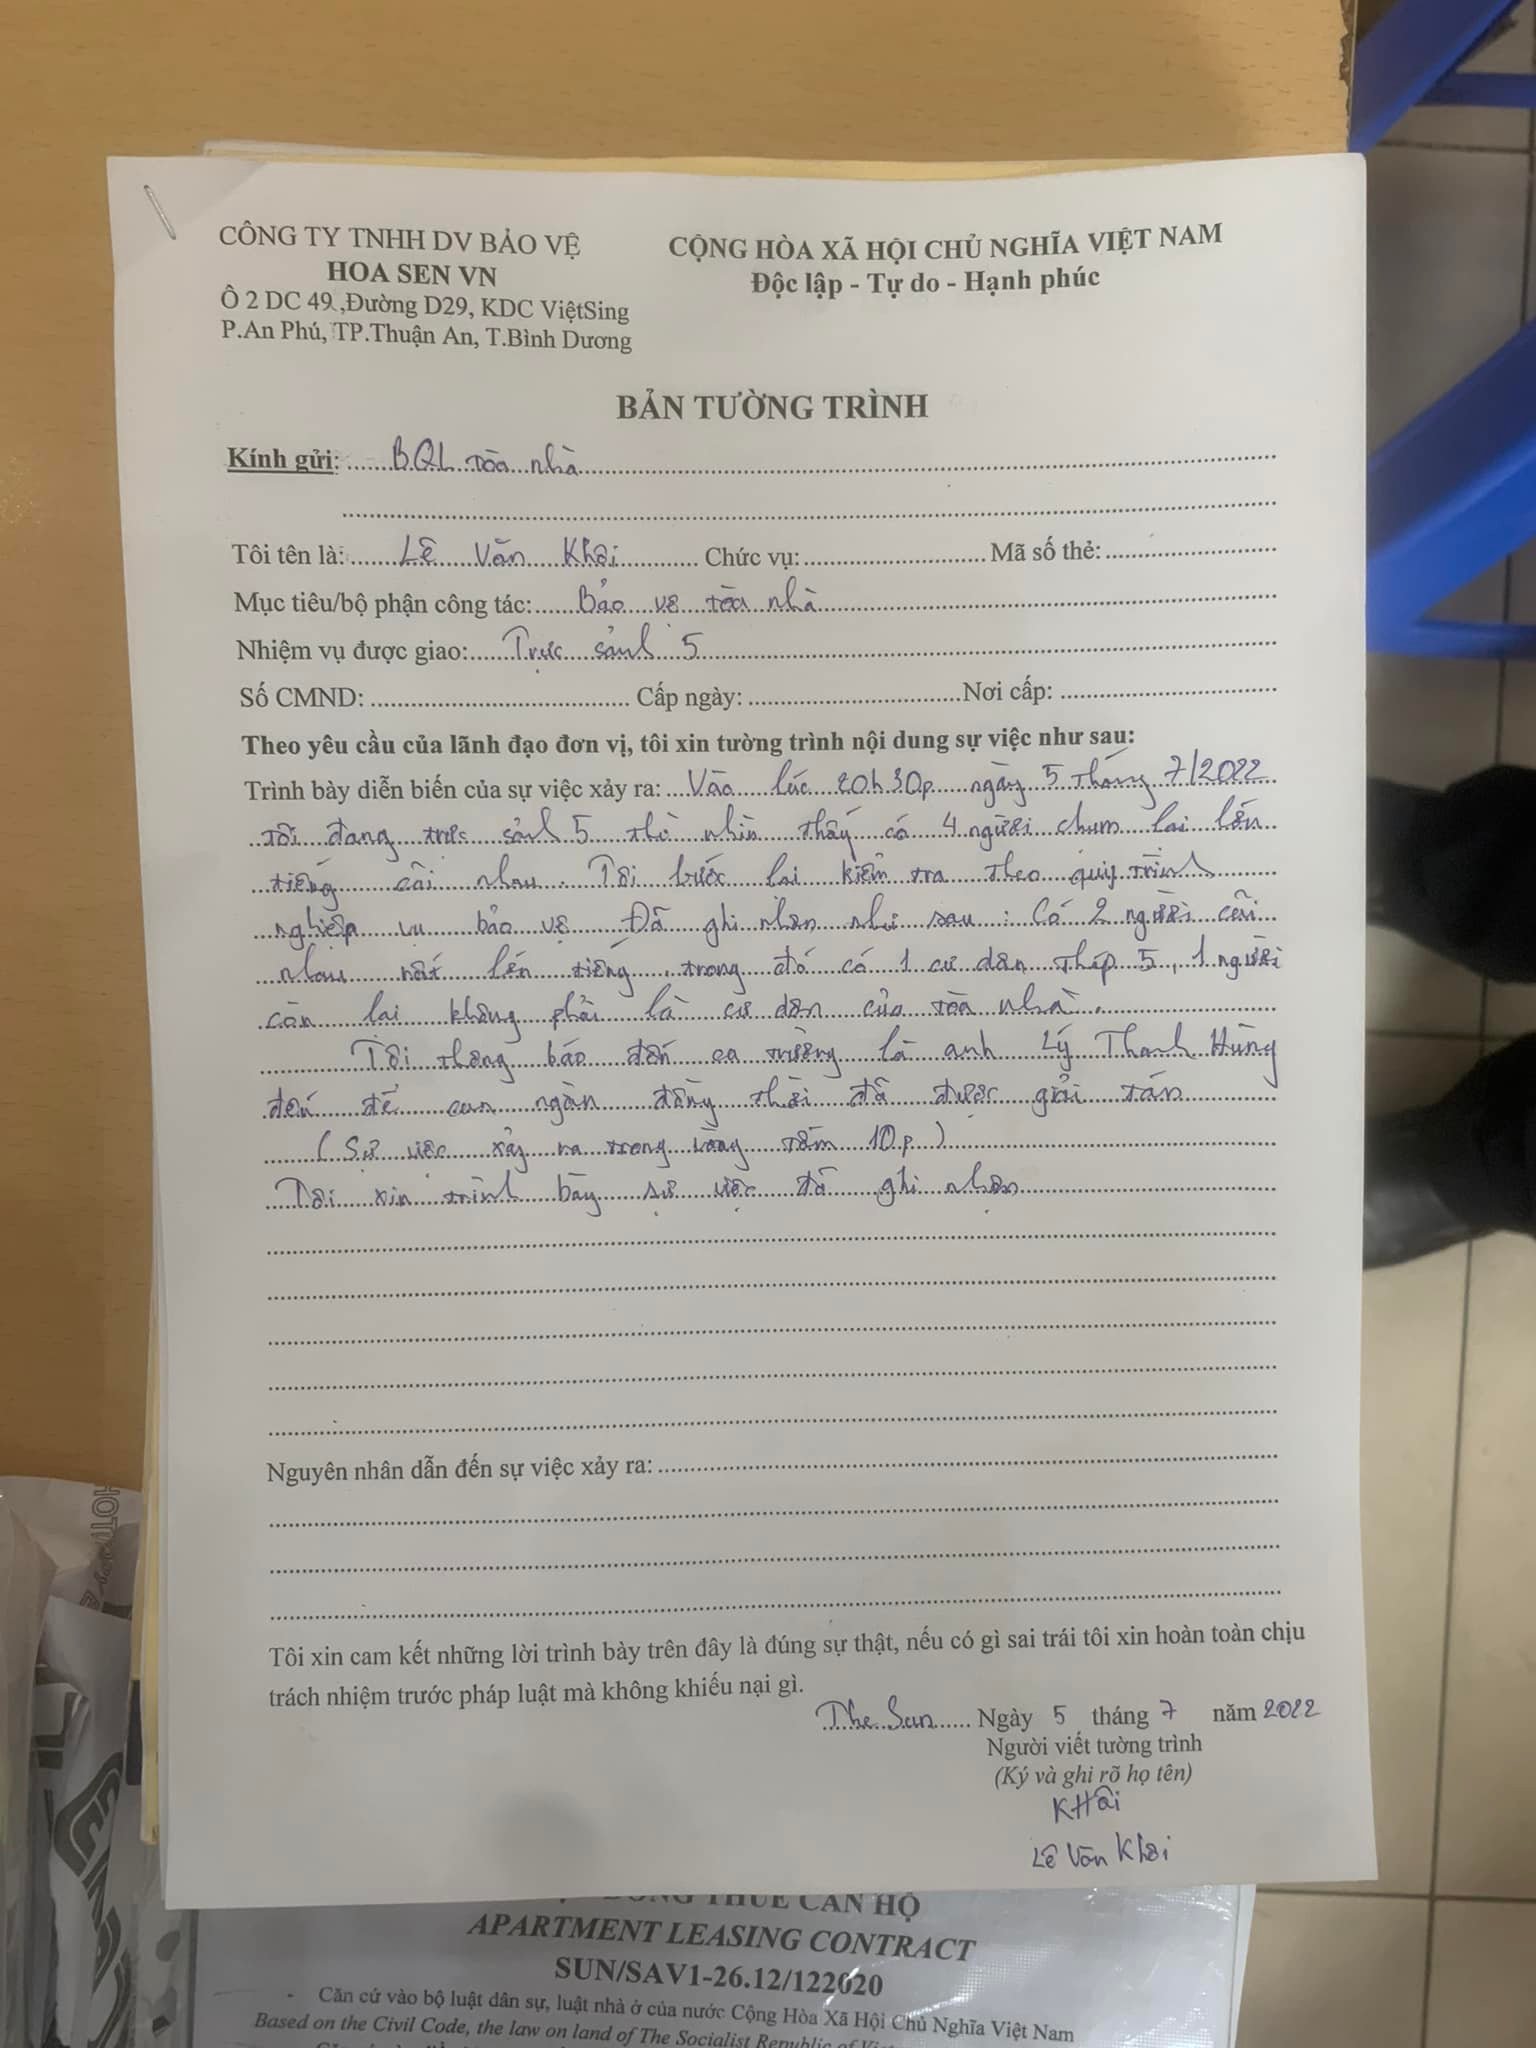 CÔNG TY TNHH DV BẢO VỆ
HOA SEN VN
Ô 2 DC 49.,Đường D29, KDC ViệtSing
P.An Phú, TP.Thuận An, T.Bình Dương
CỘNG HÒA XÃ HỘI CHỦ NGHĨA VIỆT NAM
Độc lập - Tự do - Hạnh phúc
BẢN TƯỜNG TRÌNH
Kính gửi: BQL tòa nhà
Tôi tên là: Lê Văn Khôi Chức vụ: Mã số thẻ:
Mục tiêu/bộ phận công tác: Bảo vệ tòa nhà
Nhiệm vụ được giao: Trực sảnh 5
Số CMND: Cấp ngày: Nơi cấp:
Theo yêu cầu của lãnh đạo đơn vị, tôi xin tường trình nội dung sự việc như sau:
Trình bày diễn biến của sự việc xảy ra: Vào lúc 20h30p ngày 5 tháng 7/2022
tôi đang trực sảnh 5 thì nhìn thấy có 4 người chụm lại lớn
tiếng cãi nhau. Tôi bước lại kiểm tra theo quy trình
nghiệp vụ bảo vệ. Đã ghi nhận như sau: Có 2 người cãi
nhau rất lớn tiếng, trong đó có 1 cư dân tháp 5, 1 người
còn lại không phải là cư dân của tòa nhà.
Tôi thông báo đến ca trưởng là anh Lý Thanh Hùng
đến để can ngăn đồng thời đã được giải tán
(Sự việc xảy ra trong vòng tầm 10p)
Tôi xin trình bày sự việc đã ghi nhận
Nguyên nhân dẫn đến sự việc xảy ra:
Tôi xin cam kết những lời trình bày trên đây là đúng sự thật, nếu có gì sai trái tôi xin hoàn toàn chịu
trách nhiệm trước pháp luật mà không khiếu nại gì.
The Sun Ngày 5 tháng 7 năm 2022
Người viết tường trình
(Ký và ghi rõ họ tên)
KHôi
Lê Văn Khôi
ĐỒNG THUÊ CĂN HỘ
APARTMENT LEASING CONTRACT
SUN/SAV1-26.12/122020
- Căn cứ vào bộ luật dân sự, luật nhà ở của nước Cộng Hòa Xã Hội Chủ Nghĩa Việt Nam
Based on the Civil Code, the law on land of The Socialist Republic of